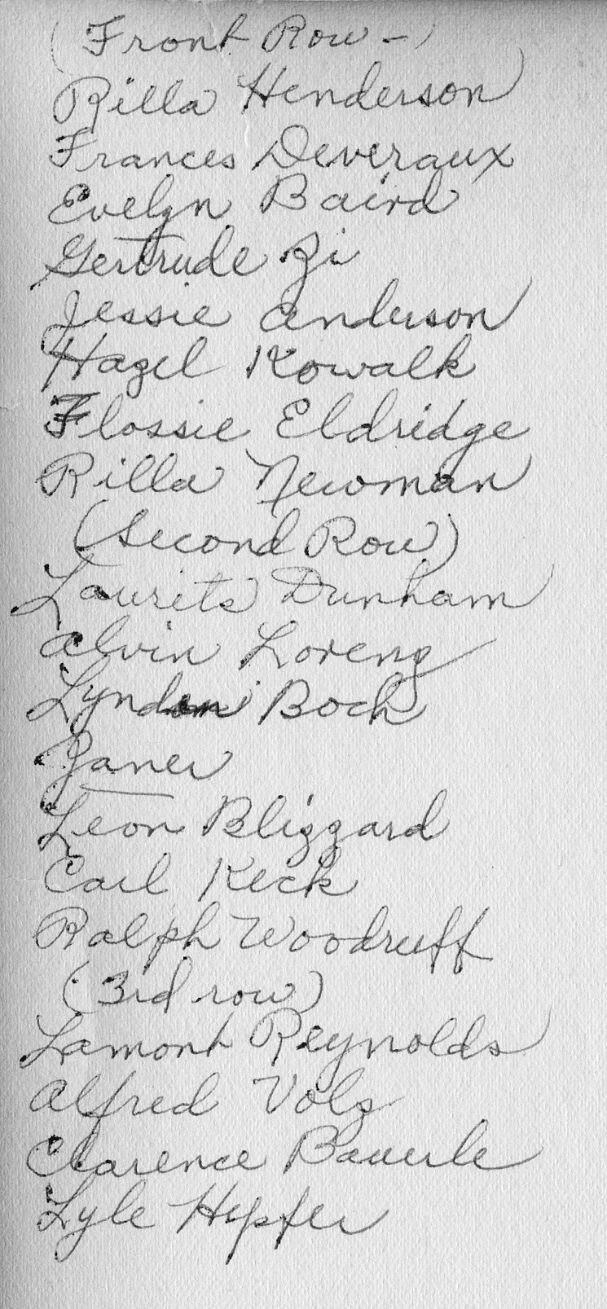 (Front Row -)
Rilla Henderson
Frances Deveraux
Evelyn Baird
Gertrude Zi
Jessie Anderson
Hazel Kowalk
Flossie Eldridge
Rilla Newman
(Second Row)
Laurits Dunham
Alvin Lorenz
Lyndon Boch
Janet
Leon Blizzard
Carl Keck
Ralph Woodruff
(3rd row)
Lamont Reynolds
Alfred Volz
Clarence Bauerle
Lyle Hepfer